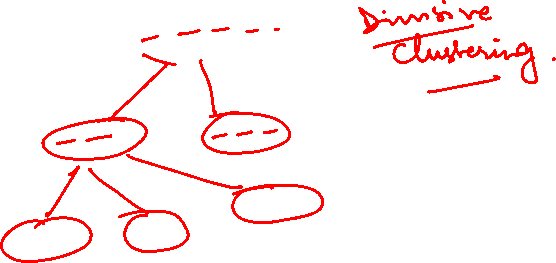 Divisive
Clustering.